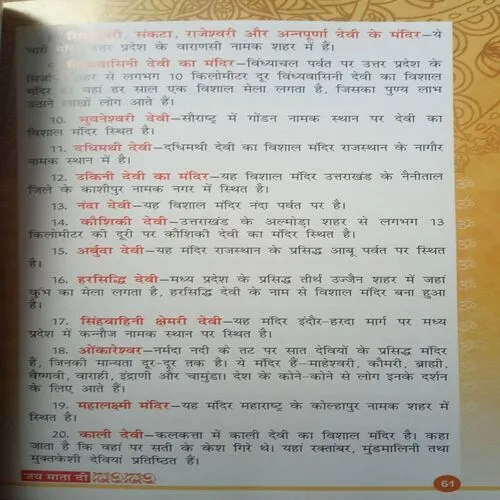 सिद्धेश्वरी, संकटा, राजेश्वरी और अन्नपूर्णा देवी के मंदिर–ये
चारों मंदिर उत्तर प्रदेश के वाराणसी नामक शहर में हैं।
विंध्यवासिनी देवी का मंदिर–विंध्याचल पर्वत पर उत्तर प्रदेश के
शहर से लगभग 10 किलोमीटर दूर विंध्यवासिनी देवी का विशाल
मंदिर है। यहां हर साल एक विशाल मेला लगता है, जिसका पुण्य लाभ
उठाने लाखों लोग आते हैं।
10. भुवनेश्वरी देवी–सौराष्ट्र में गोंडन नामक स्थान पर देवी का
विशाल मंदिर स्थित है।
11. दधिमथी देवी–दधिमथी देवी का विशाल मंदिर राजस्थान के नागौर
नामक स्थान में है।
12. उकिनी देवी का मंदिर–यह विशाल मंदिर उत्तराखंड के नैनीताल
जिले के काशीपुर नामक नगर में स्थित है।
13. नंदा देवी–यह विशाल मंदिर नंदा पर्वत पर है।
14. कौशिकी देवी–उत्तराखंड के अल्मोड़ा शहर से लगभग 13
किलोमीटर की दूरी पर कौशिकी देवी का मंदिर स्थित है।
15. अर्बुदा देवी–यह मंदिर राजस्थान के प्रसिद्ध आबू पर्वत पर स्थित
है।
16. हरसिद्धि देवी–मध्य प्रदेश के प्रसिद्ध तीर्थ उज्जैन शहर में जहां
कुंभ का मेला लगता है, हरसिद्धि देवी के नाम से विशाल मंदिर बना हुआ
है।
17. सिंहवाहिनी क्षेमरी देवी–यह मंदिर इंदौर-हरदा मार्ग पर मध्य
प्रदेश में कन्नौज नामक स्थान पर स्थित है।
18. ओंकारेश्वर–नर्मदा नदी के तट पर सात देवियों के प्रसिद्ध मंदिर
हैं, जिनकी मान्यता दूर-दूर तक है। ये मंदिर हैं–माहेश्वरी, कौमरी, ब्राह्मी,
वैष्णवी, वाराही, इंद्राणी और चामुंडा। देश के कोने-कोने से लोग इनके दर्शन
के लिए आते हैं।
19. महालक्ष्मी मंदिर–यह मंदिर महाराष्ट्र के कोल्हापुर नामक शहर में
स्थित है।
20. काली देवी–कलकत्ता में काली देवी का विशाल मंदिर है। कहा
जाता है कि वहां पर सती के केश गिरे थे। यहां रक्तांबर, मुंडमालिनी तथा
मुक्तकेशी देवियां प्रतिष्ठित हैं।
जय माता दी
61